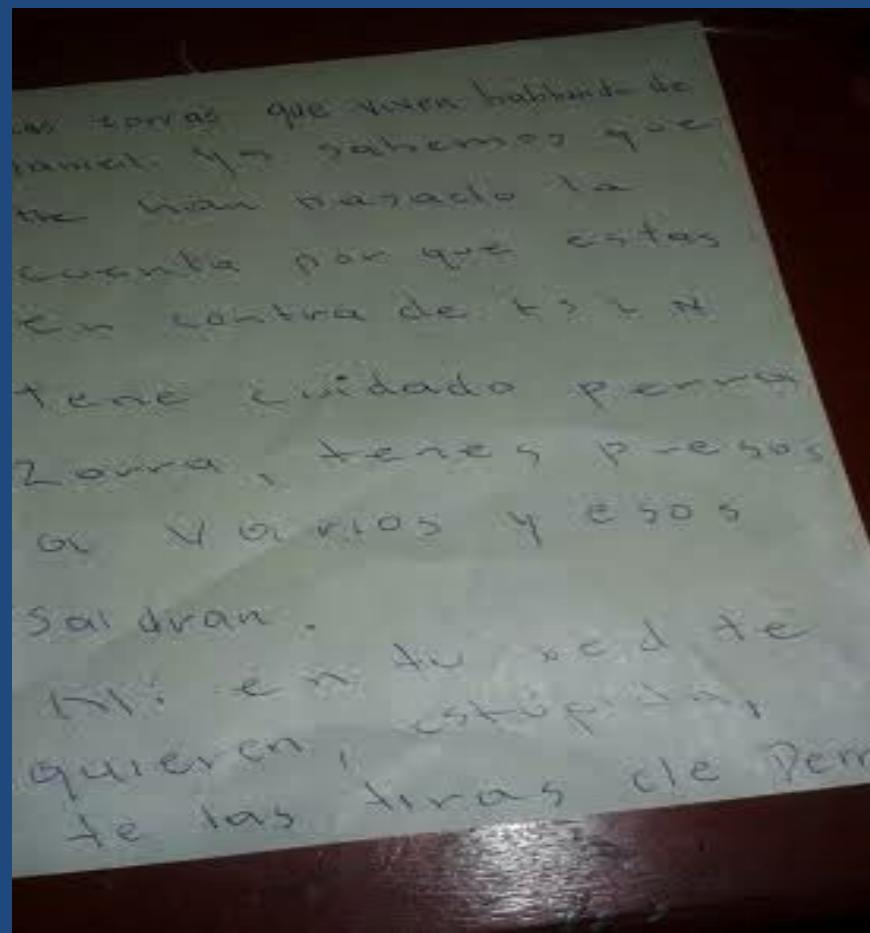 zorras que viven hablando de
Ya sabemos que
te han pasado la
cuenta por que estas
en contra de FSLN
tene cuidado perra
Zorra, tenes presos
a varios y esos
Saldran.
Ni en tu red te
quieren, estupida,
te las tiras de